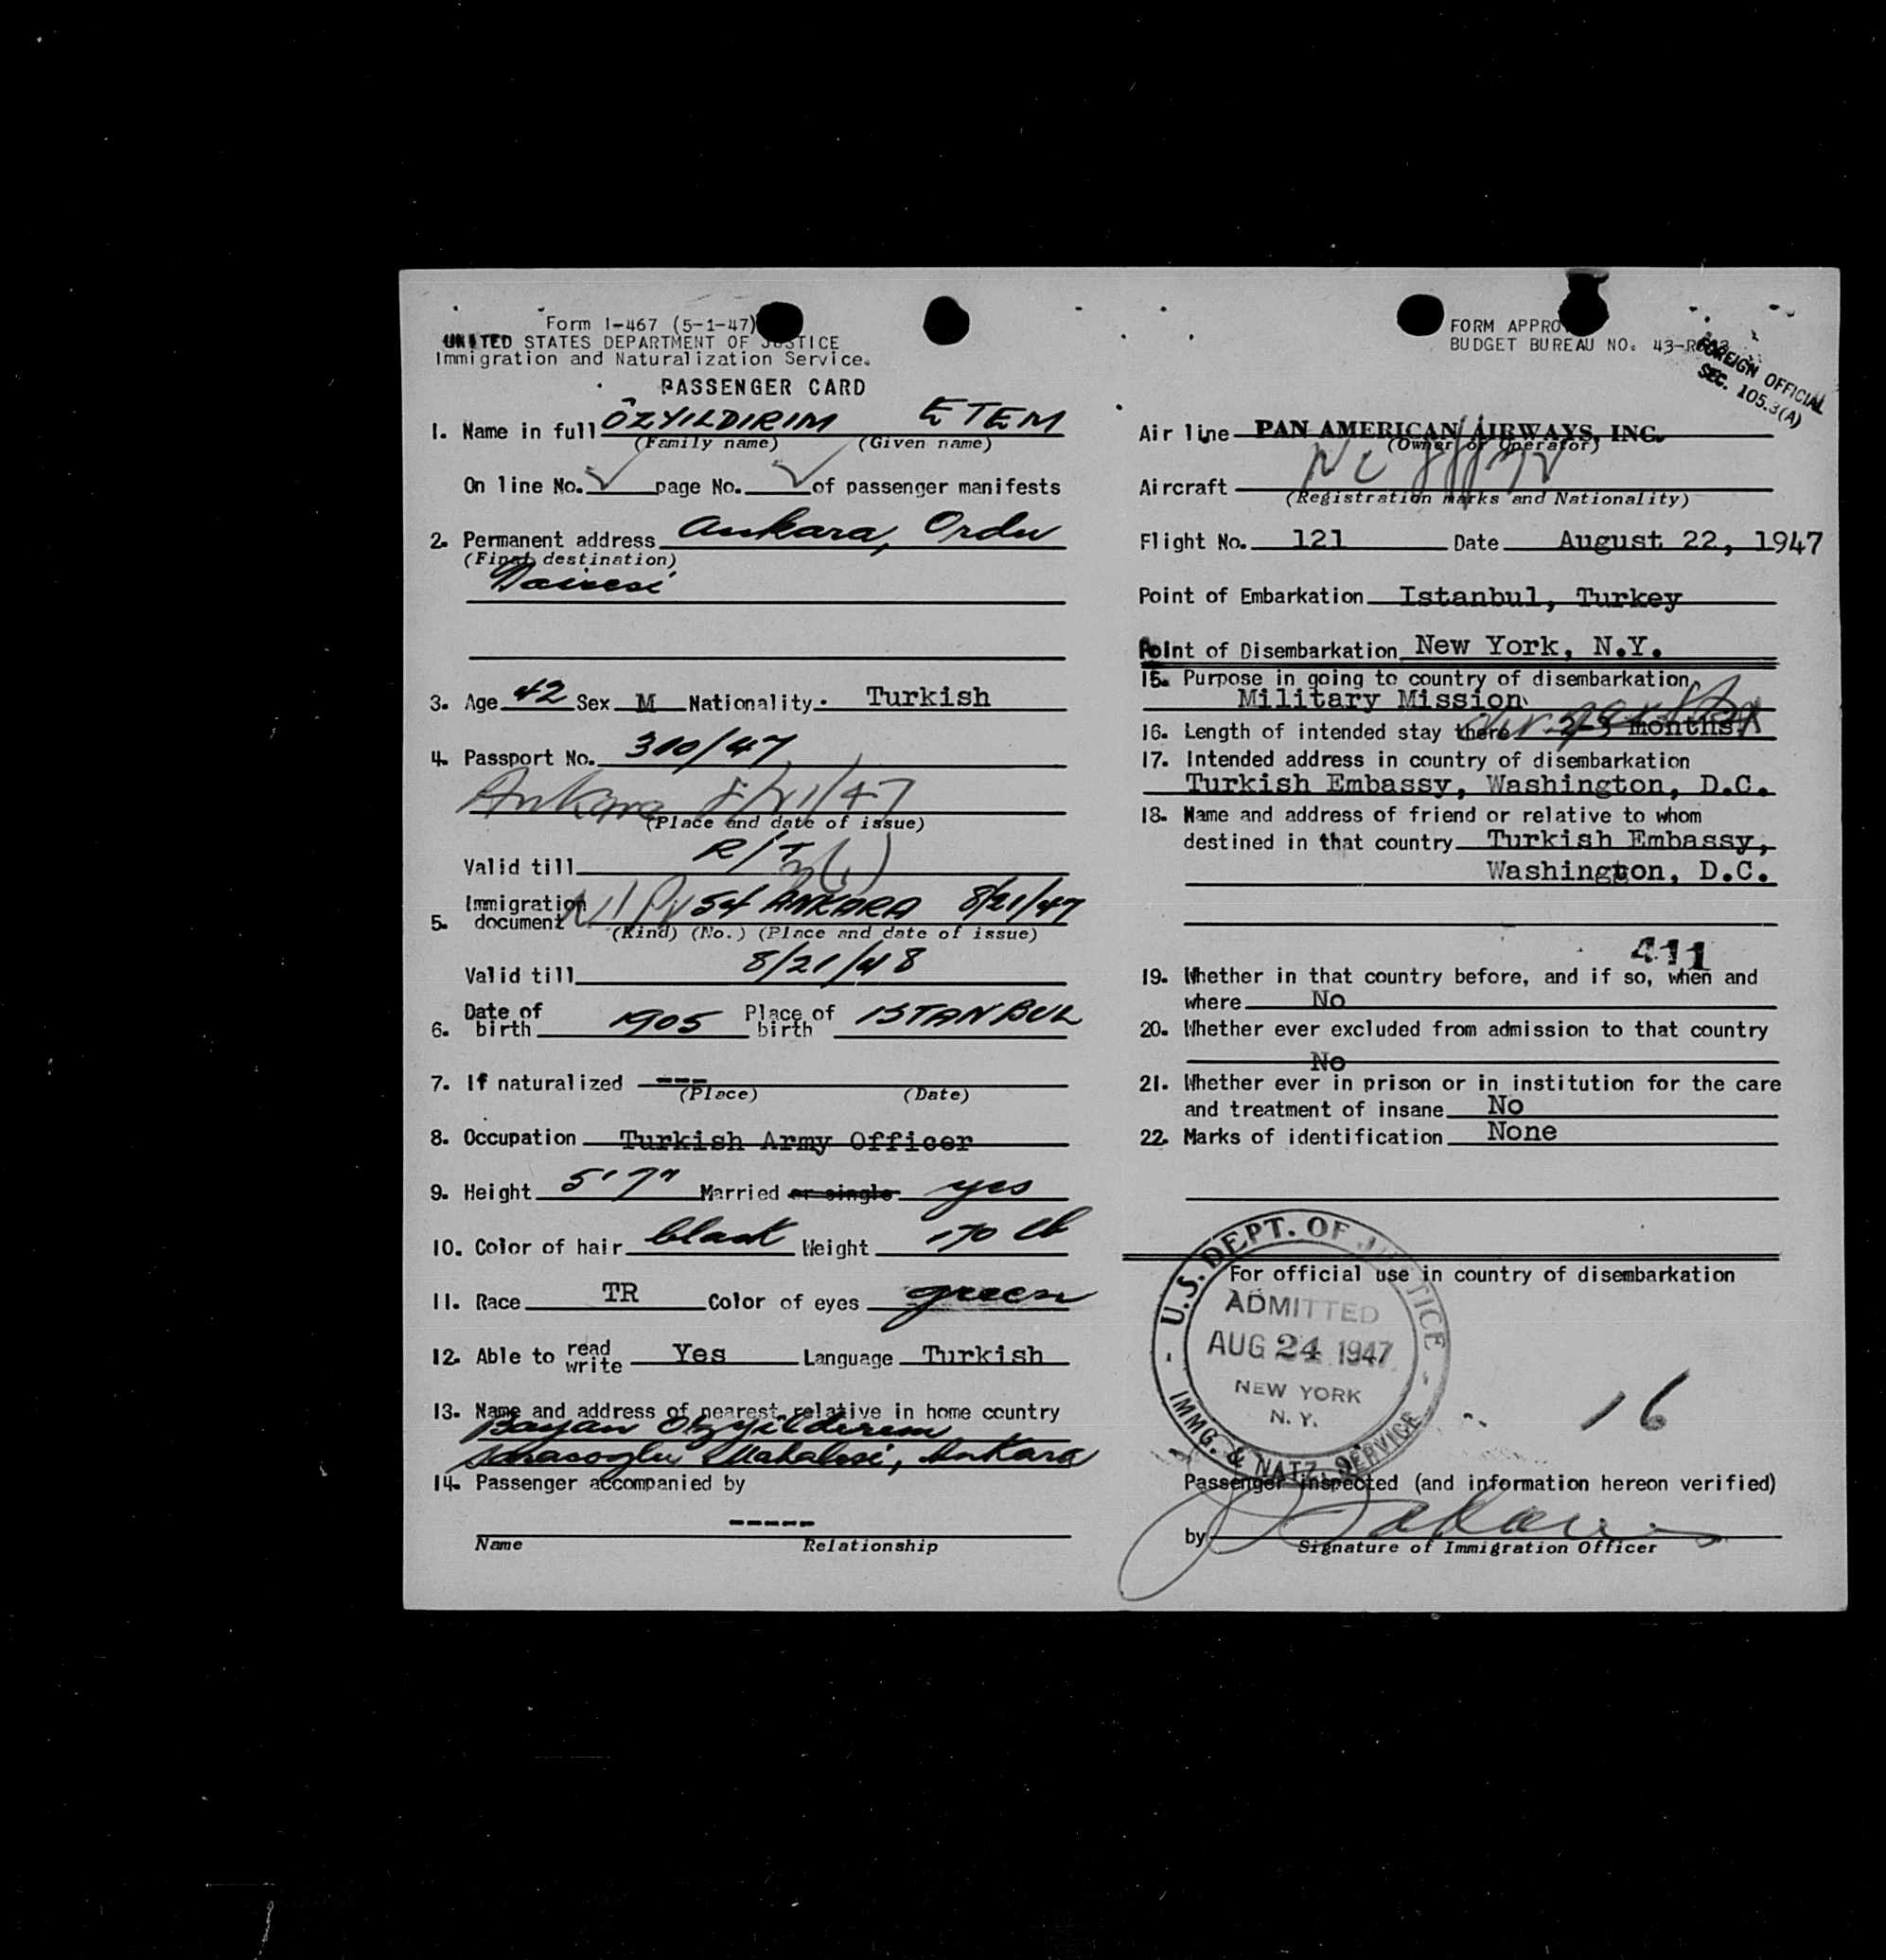 Form I-467 (5-1-47)
UNITED STATES DEPARTMENT OF JUSTICE
Immigration and Naturalization Service.
PASSENGER CARD
1. Name in full ÖZYILDIRIM ETEM
(Family name) (Given name)
On line No. page No. of passenger manifests
2. Permanent address Ankara, Ordu
(Final destination)
Dairesi
3. Age 42 Sex M Nationality Turkish
4. Passport No. 310/47
Ankara 8/21/47
(Place and date of issue)
Valid till R/T
5. Immigration document 54 ANKARA 8/21/47
(Kind) (No.) (Place and date of issue)
Valid till 8/21/48
6. Date of birth 1905 Place of birth ISTANBUL
7. If naturalized ---
(Place) (Date)
8. Occupation Turkish Army Officer
9. Height 5'7" Married or single yes
10. Color of hair black Weight 170 lb
11. Race TR Color of eyes green
12. Able to read write Yes Language Turkish
13. Name and address of nearest relative in home country
Bayan Ozyildirim
Mahalesi, Ankara
14. Passenger accompanied by
-----
Name Relationship
FORM APPRO
BUDGET BUREAU NO. 43-R
FOREIGN OFFICIAL
SEC. 105.3(A)
Air line PAN AMERICAN AIRWAYS, INC.
(Owner or Operator)
Aircraft NC
(Registration marks and Nationality)
Flight No. 121 Date August 22, 1947
Point of Embarkation Istanbul, Turkey
Point of Disembarkation New York, N.Y.
15. Purpose in going to country of disembarkation
Military Mission
16. Length of intended stay there 2-3 months
17. Intended address in country of disembarkation
Turkish Embassy, Washington, D.C.
18. Name and address of friend or relative to whom
destined in that country Turkish Embassy,
Washington, D.C.
411
19. Whether in that country before, and if so, when and
where No
20. Whether ever excluded from admission to that country
No
21. Whether ever in prison or in institution for the care
and treatment of insane No
22. Marks of identification None
For official use in country of disembarkation
U.S. DEPT. OF JUSTICE
ADMITTED
AUG 24 1947
NEW YORK
N. Y.
IMMG. & NATZ. SERVICE
16
Passenger inspected (and information hereon verified)
by
Signature of Immigration Officer